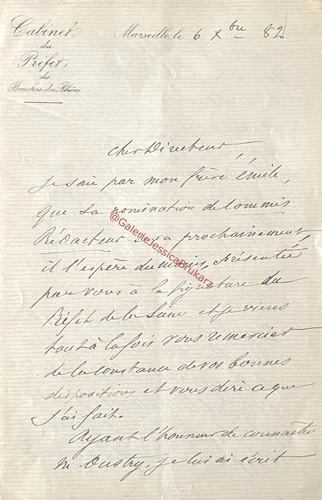 Cabinet
du
Préfet
des
Bouches-du-Rhône
Marseille, le 6 Xbre 82
Cher Directeur,
Je sais par mon frère Émile,
que sa nomination de Commis
Rédacteur sera prochainement,
il l'espère du moins, présentée
par vous à la signature du
Préfet de la Seine et je viens
tout à la fois vous remercier
de la constance de vos bonnes
dispositions et vous dire ce que
j'ai fait.
Ayant l'honneur de connaître
M. Oustry, je lui ai écrit
@GalerieJessicaBrukarz